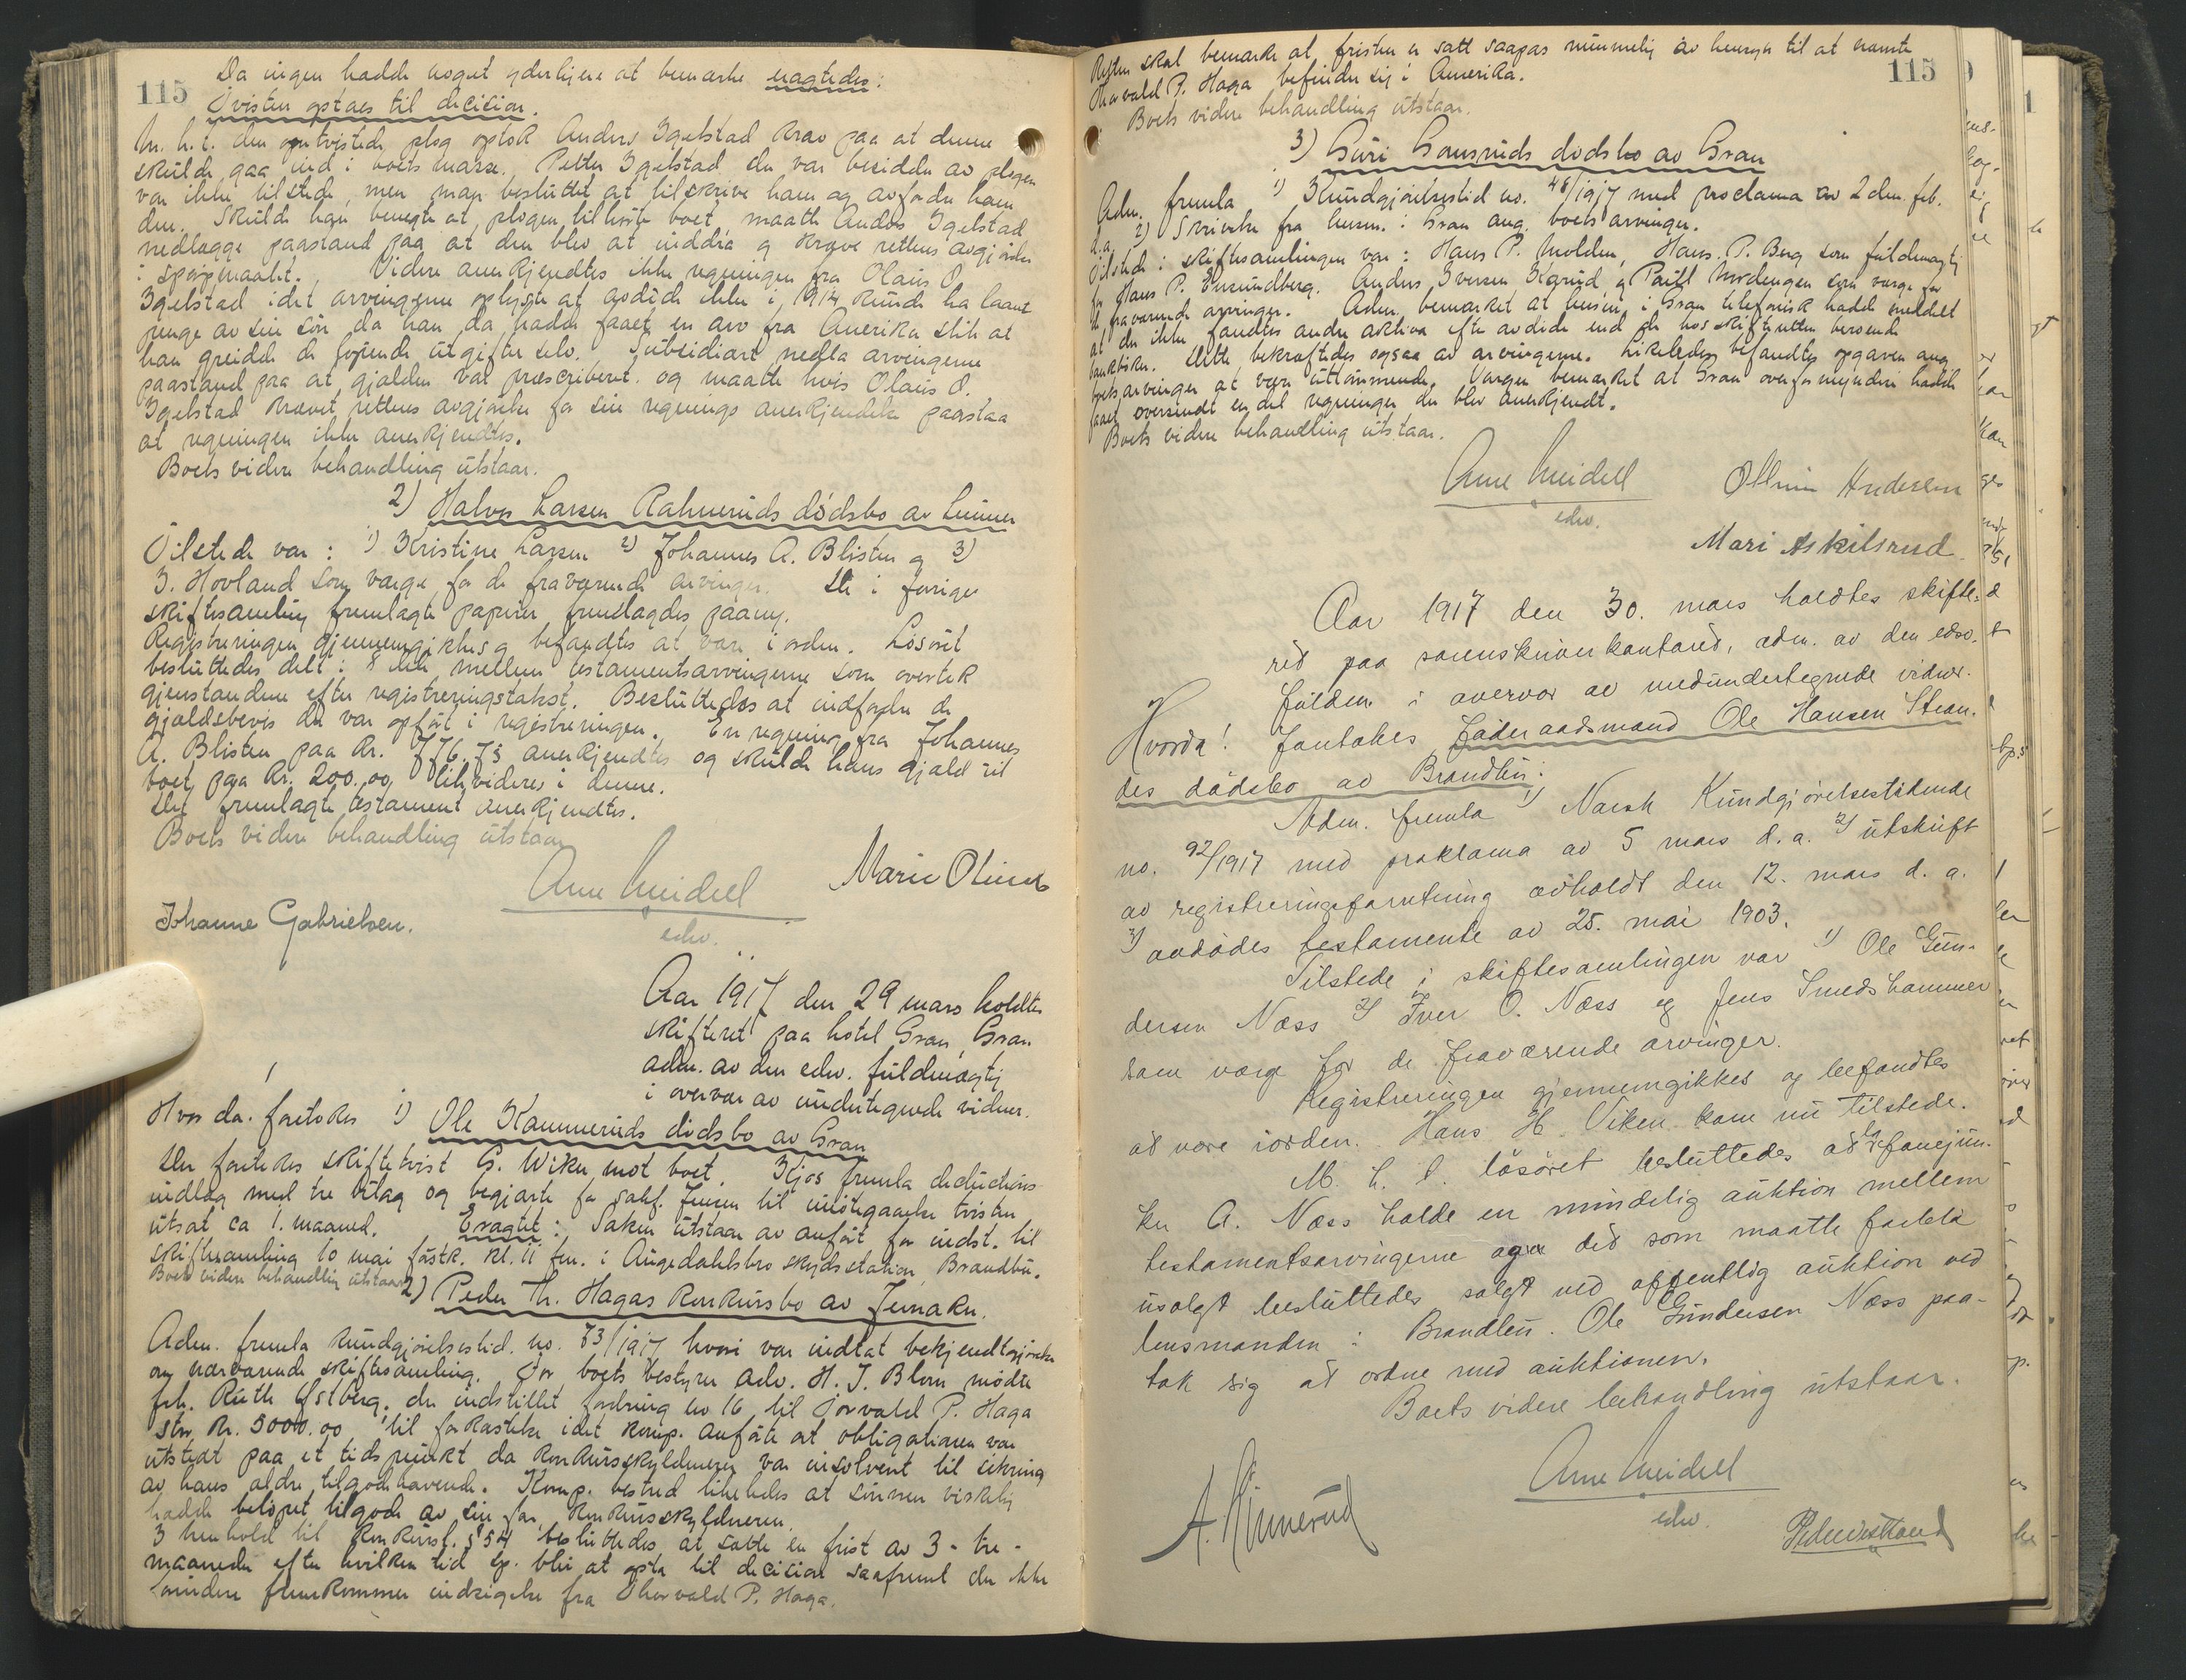 115
Da ingen hadde noget yderligere at bemærke eragtedes:
Tvisten optaes til decision.
M. h. t. den omtvistede plog optok Anders Igelstad krav paa at denne
skulde gaa ind i boets masse. Petter Igelstad der var besidder av plogen
var ikke tilstede, men man besluttet at tilskrive ham og avfordre ham
den. Skulde han benegte at plogen tilhørte boet maatte Anders Igelstad
nedlægge paastand paa at den blev at inddra og kræve rettens avgjørelse
i spørgsmaalet. Videre anerkjendtes ikke regningen fra Olaus O.
Igelstad idet arvingerne oplyste at avdøde ikke i 1914 kunde ha laant
penge av sin søn da han da hadde faaet en arv fra Amerika slik at
han greidde de løpende utgifter selv. Subsidiært nedla arvingerne
paastand paa at gjælden var præscriberet og maatte hvis Olaus O.
Igelstad krævet rettens avgjørelse for sin regnings anerkjendelse paastaa
at regningen ikke anerkjendtes.
Boets videre behandling utstaar.
2) Halvor Larsen Rahmeruds dødsbo av Lunner
Tilstede var: 1) Kristine Larsen 2) Johannes A. Blisten og 3)
I. Hovland som værge for de fraværende arvinger. De i forrige
skiftesamling fremlagte papirer fremlagdes paany.
Registreringen gjennemgikkes og befandtes at være i orden. Løsøret
besluttedes delt i 8 dele mellem testamentsarvingerne som overtok
gjenstandene efter registreringstakst. Besluttedes at indfordre de
gjældsbevis der var opført i registreringen. En regning fra Johannes
A. Blisten paa Kr. 776,73 anerkjendtes og skulde hans gjæld til
boet paa Kr. 200,00 likvideres i denne.
Det fremlagte testament anerkjendtes.
Boets videre behandling utstaar
Arne Meidell
edsv.
Marie Olimb
Johanne Gabrielsen.
Aar 1917 den 29 mars holdtes
skifteret paa hotel Gran, Gran
adm. av den edsv. fuldmægtig
i overvær av undertegnede vidner.
Hvor da. foretokes 1) Ole Kammeruds dødsbo av Gran
Der foretokes skiftetvist G. Wiker mot boet. Kjos fremla deductions-
indlæg med tre bilag og begjærte for sakf. Jensen til imøtegaaelse tvisten
utsat ca 1. maaned. Eragtet: Saken utstaar av anført for indst. til
skiftesamling 10 mai førstk. kl. 11 fm. i Augedahlsbro skydsstation, Brandbu.
Boets videre behandling utstaar.
2) Peder Th. Hagas konkursbo av Jevnaker.
Adm. fremla kundgjørelsestid. no. 73/1917 hvori var indtat bekjendtgjørelse
om nærværende skiftesamling. For boets bestyrer adv. H. J. Blom mødte
frk. Ruth Østberg, der indstillet fordring no 16 til Torvald P. Haga
stor Kr. 5000.00 til forkastelse idet komp. anførte at obligationen var
utstedt paa et tidspunkt da konkursskyldneren var insolvent til sikring
av hans ældre tilgodehavende. Komp. bestred likeledes at sønnen virkelig
hadde beløpet tilgode av sin far, konkursskyldneren.
I henhold til konkursl. § 54 besluttedes at sætte en frist av 3 - tre -
maaneder efter hvilken tid sp. blir at opta til decision saafremt der ikke
mindre fremkommer indsigelse fra Thorvald P. Haga.
115
Retten skal bemærke at fristen er satt saapas rummelig av hensyn til at nævnte
Thorvald P. Haga befinder sig i Amerika.
Boets videre behandling utstaar.
3) Guri Gonsruds dødsbo av Gran
Adm. fremla 1) Kundgjørelsestid no. 48/1917 med proclama av 2den feb.
d.a. 2) Skrivelse fra lensm. i Gran ang. boets arvinger.
Tilstede i skiftesamlingen var: Hans P. Molden, Hans P. Berg som fuldmægtig
for Hans P. Emundberg. Anders Iversen Egrud, og Paul Nordengen som værge for
de fraværende arvinger. Adm. bemærket at lensm. i Gran telefonisk hadde meddelt
at der ikke fandtes andre aktiva efter avdøde end de hos skifteretten beroende
bankbøker. Dette bekræftedes ogsaa av arvingerne. Likeledes befandtes opgaven ang.
boets arvinger at være uttømmende. Værgen bemærket at Gran overformynderi hadde
faaet oversendt en del regninger der blev anerkjendt.
Boets videre behandling utstaar.
Arne Meidell
edsv.
Andersen
Mari Askilsrud
Aar 1917 den 30. mars holdtes skifte-
ret paa sorenskriverkontoret, adm. av den edsv.
fuldm. i overvær av medundertegnede vidner.
Hvorda: foretokes Føderaadsmand Ole Hansen Stran-
des dødsbo av Brandbu:
Adm. fremla 1) Norsk Kundgjørelsestidende
no. 92/1917 med proklama av 5 mars d. a. 2) utskrift
av registreringsforretning avholdt den 12. mars d. a.
3) avdødes testamente av 25. mai 1903.
Tilstede i skiftesamlingen var 1) Ole Gun-
dersen Næss 2) Iver O. Næss og Jens Smedshammer
som værge for de fraværende arvinger.
Registreringen gjennemgikkes og befandtes
at være iorden. Hans H. Viken kom nu tilstede.
M. h. t. løsøret besluttedes at la
ker A. Næss holde en mindelig auktion mellem
testamentsarvingerne og det som maatte forbli
usolgt besluttedes solgt ved offentlig auktion ved
lensmanden i Brandbu. Ole Gundersen Næss paa-
tok sig at ordne med auktionen.
Boets videre behandling utstaar.
Arne Meidell
edsv.